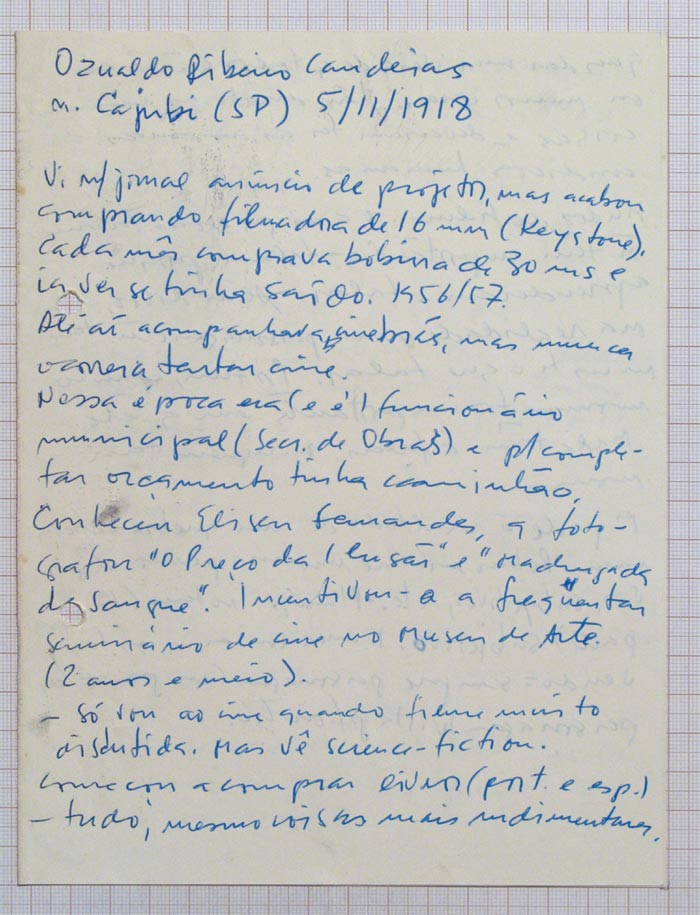 Ozualdo Ribeiro Candeias
n. Cajubi (SP) 5/11/1918
Vi n/jornal anúncio de projetor, mas acabou
comprando filmadora de 16 mm (Keystone).
Cada mês comprava bobina de 30 ms e
ia ver se tinha saído. 1956/57.
Até aí acompanhava cinebrás, mas nunca
ocorrera tentar cine.
Nessa época era (e é!) funcionário
municipal (Secr. de Obras) e p/ comple-
tar orçamento tinha caminhão.
Conheceu Eliseu Fernandes, q foto-
grafou "O Preço da Ilusão" e "Madrugada
de Sangue". Incentivou-o a freqüentar
seminário de cine no Museu de Arte.
(2 anos e meio).
- Só vou ao cine quando filme muito
discutida. Mas vê science-fiction.
Começou a comprar livros (port. e esp.)
- tudo, mesmo coisas mais rudimentares.